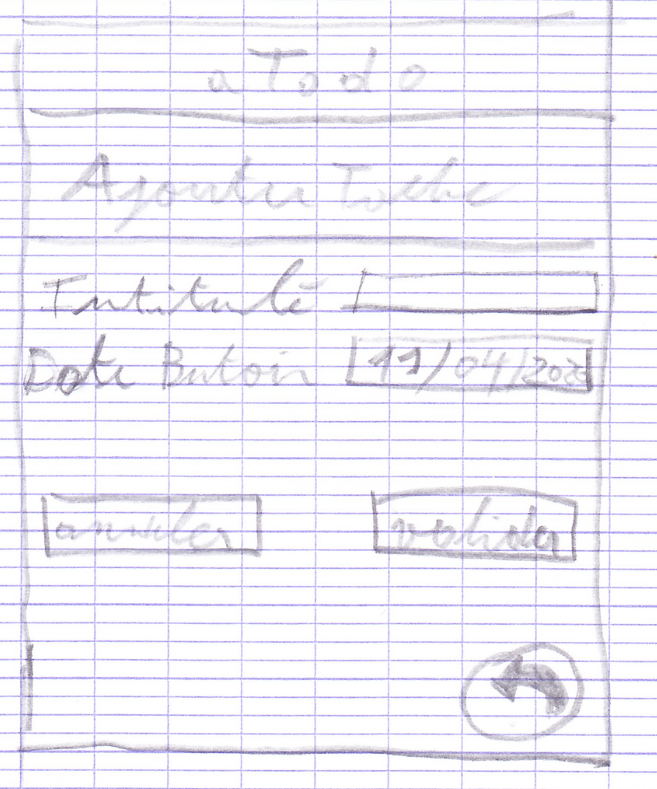 aTodo
Ajouter Tache
Intitulé
Date Butoir 11/04/202
annuler valider